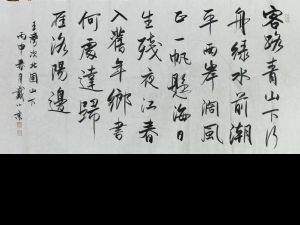 客路青山下行
舟绿水前潮
平两岸阔风
正一帆悬海日
生残夜江春
入旧年乡书
何处达归
雁洛阳边
王湾次北固山下
丙申春月戴小京